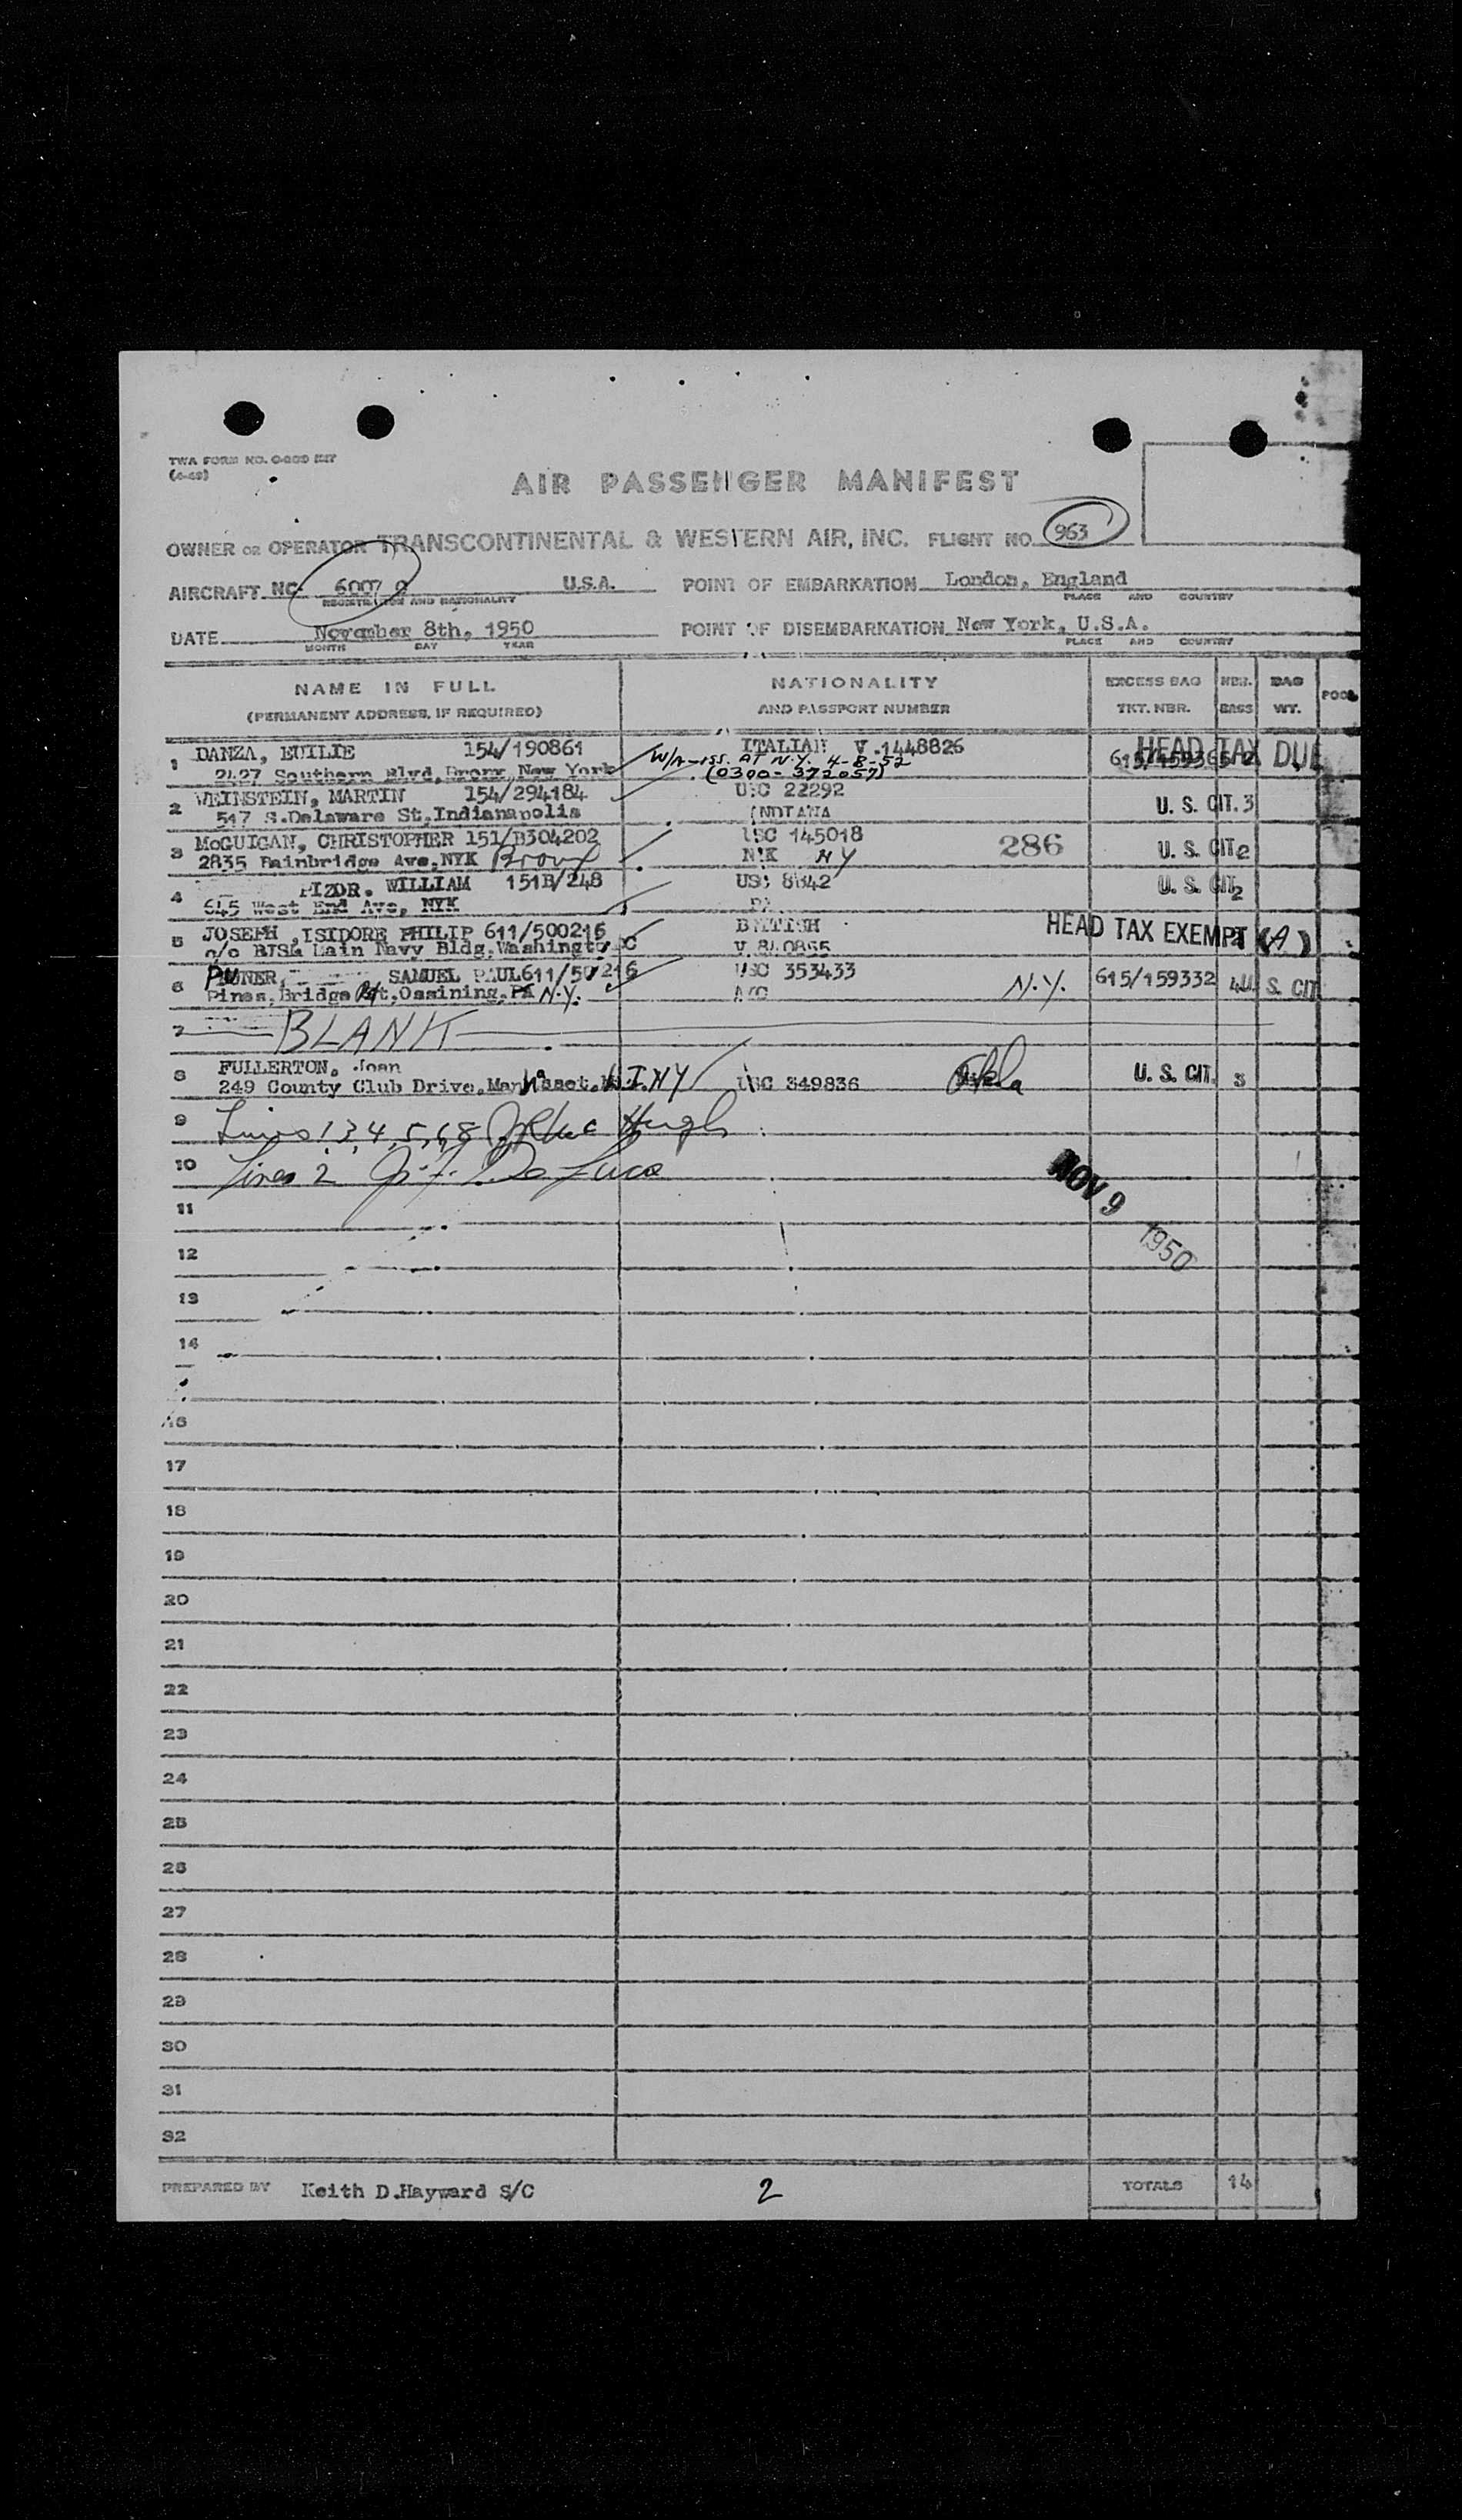 TWA FORM NO.
AIR PASSENGER MANIFEST
OWNER OR OPERATOR TRANSCONTINENTAL & WESTERN AIR, INC. FLIGHT NO. 963
AIRCRAFT NO. U.S.A. POINT OF EMBARKATION London, England
REGISTRATION AND NATIONALITY PLACE AND COUNTRY
DATE November 8th, 1950 POINT OF DISEMBARKATION New York, U.S.A.
MONTH DAY YEAR PLACE AND COUNTRY
NAME IN FULL NATIONALITY EXCESS BAG NBR. BAG POOL
(PERMANENT ADDRESS, IF REQUIRED) AND PASSPORT NUMBER TKT. NBR. BAGS WT.
1 DANZA, 154/190861 ITALIAN V.1448826 HEAD TAX DUE
2427 Southern Blvd, Bronx, New York W/A-iss. AT N.Y. 4-8-52
(0300-372057)
2 WEINSTEIN, MARTIN 154/294184 USC 22292
517 S.Delaware St, Indianapolis INDIANA U. S. CIT. 3
3 McGUIGAN, CHRISTOPHER 151/B304202 USC 145018 286 U. S. CIT 2
2835 Bainbridge Ave, NYK Bronx NYK NY
4 PIZOR. WILLIAM 151B/248 U. S. CIT 2
645 West End Ave, NYK
5 JOSEPH, ISIDORE PHILIP 611/500216 BRITISH HEAD TAX EXEMPT (A)
c/o Main Navy Bldg, Washington DC
6 SAMUEL PAUL 611/50 216 USC 353433 N.Y. 615/159332 4 U. S. CIT
Pines, Bridge Ossining, PA N.Y. NYC
7 BLANK
8 FULLERTON, Joan
249 County Club Drive, Manhasset, L.I. NY USC 349836 U. S. CIT. 3
9 Lines 1 3 4, 5, 6, 8
10 Lines 2 De Luca
NOV 9 1950
11
12
13
14
16
17
18
19
20
21
22
23
24
25
26
27
28
29
30
31
32
PREPARED BY Keith D.Hayward S/C 2 TOTALS 14